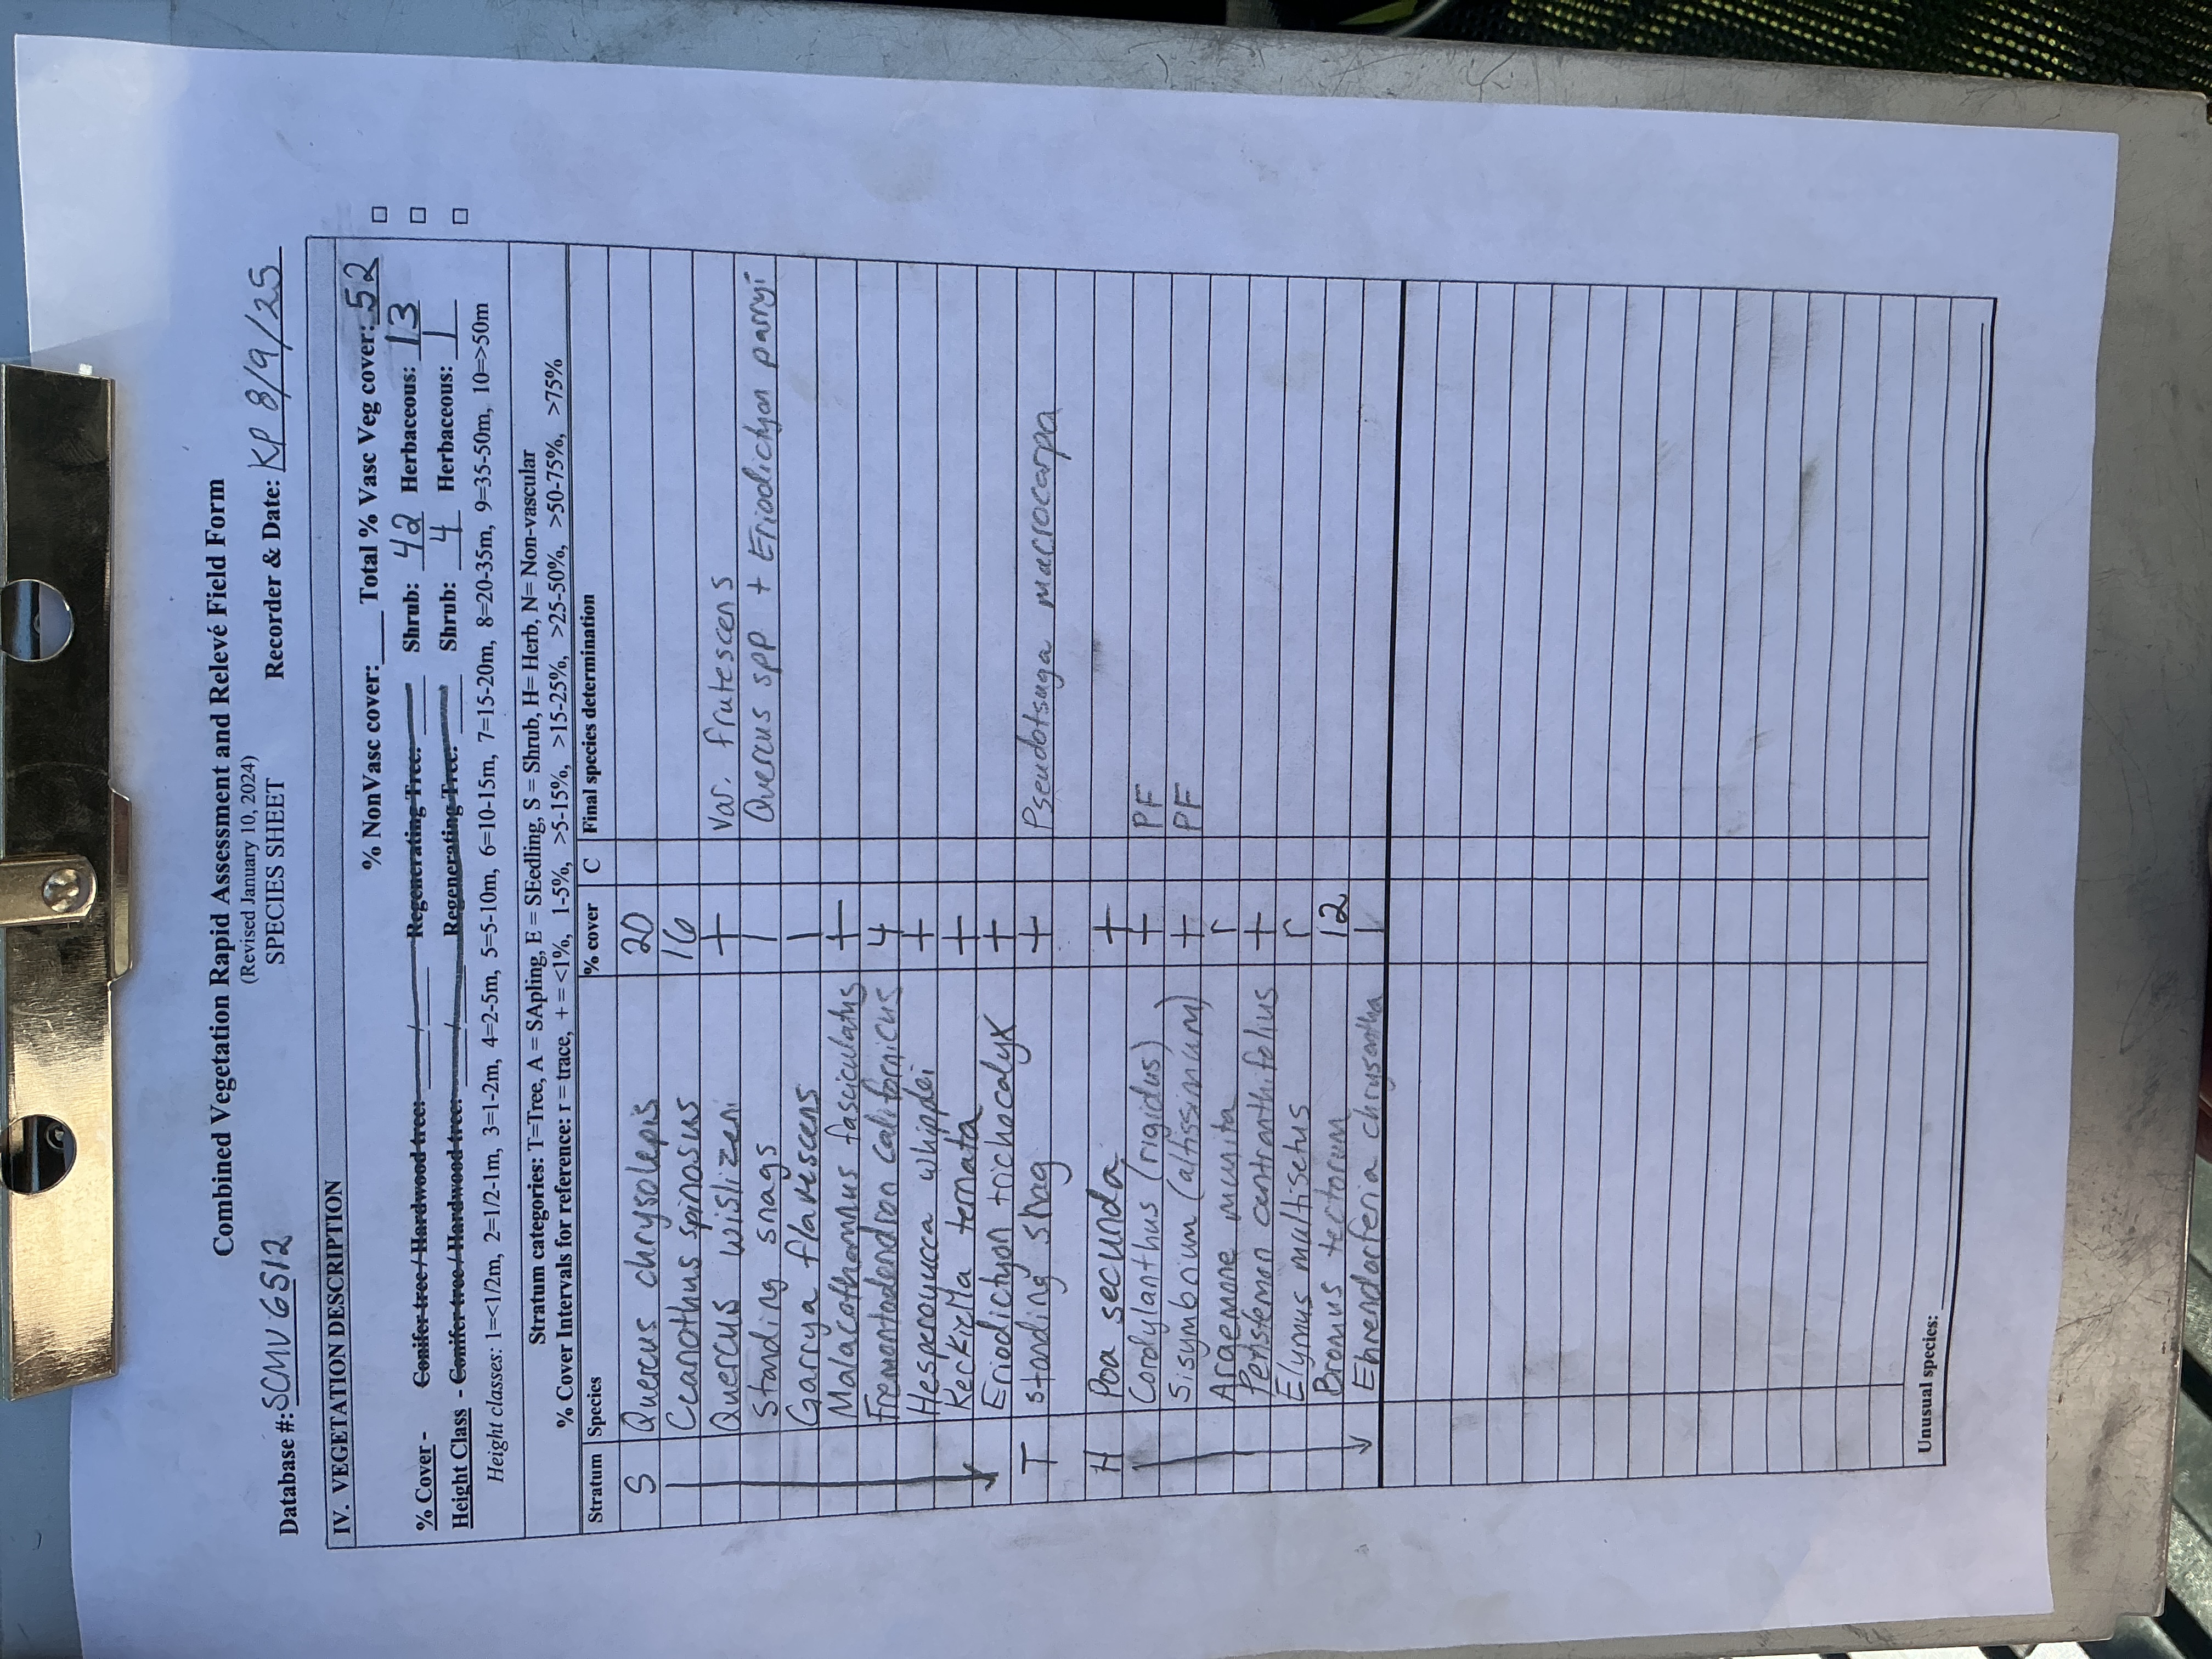 Combined Vegetation Rapid Assessment and Relevé Field Form
(Revised January 10, 2024)
SPECIES SHEET
Database #: SCMV6512 Recorder & Date: KP 8/9/25
IV. VEGETATION DESCRIPTION
% NonVasc cover:____ Total % Vasc Veg cover: 52
% Cover - Conifer tree / Hardwood tree: / Regenerating Tree: Shrub: 42 Herbaceous: 13
Height Class - Conifer tree / Hardwood tree: / Regenerating Tree: Shrub: 4 Herbaceous: 1
Height classes: 1=<1/2m, 2=1/2-1m, 3=1-2m, 4=2-5m, 5=5-10m, 6=10-15m, 7=15-20m, 8=20-35m, 9=35-50m, 10=>50m
Stratum categories: T=Tree, A = SApling, E = SEedling, S = Shrub, H= Herb, N= Non-vascular
% Cover Intervals for reference: r = trace, + = <1%, 1-5%, >5-15%, >15-25%, >25-50%, >50-75%, >75%
Stratum Species % cover C Final species determination
S Quercus chrysolepis 20
Ceanothus spinosus 16
Quercus wislizeni + var. frutescens
Standing snags 1 Quercus spp + Eriodictyon parryi
Garrya flavescens 1
Malacothamnus fasciculatus +
Fremontodendron californicus 4
Hesperoyucca whipplei +
Keckiella ternata +
Eriodictyon trichocalyx +
T standing snag + Pseudotsuga macrocarpa
H Poa secunda +
Cordylanthus (rigidus) + PF
Sisymbrium (altissimum) + PF
Argemone munita r
Penstemon centranthifolius +
Elymus multisetus r
Bromus tectorum 12
Ehrendorferia chrysantha 1
Unusual species: